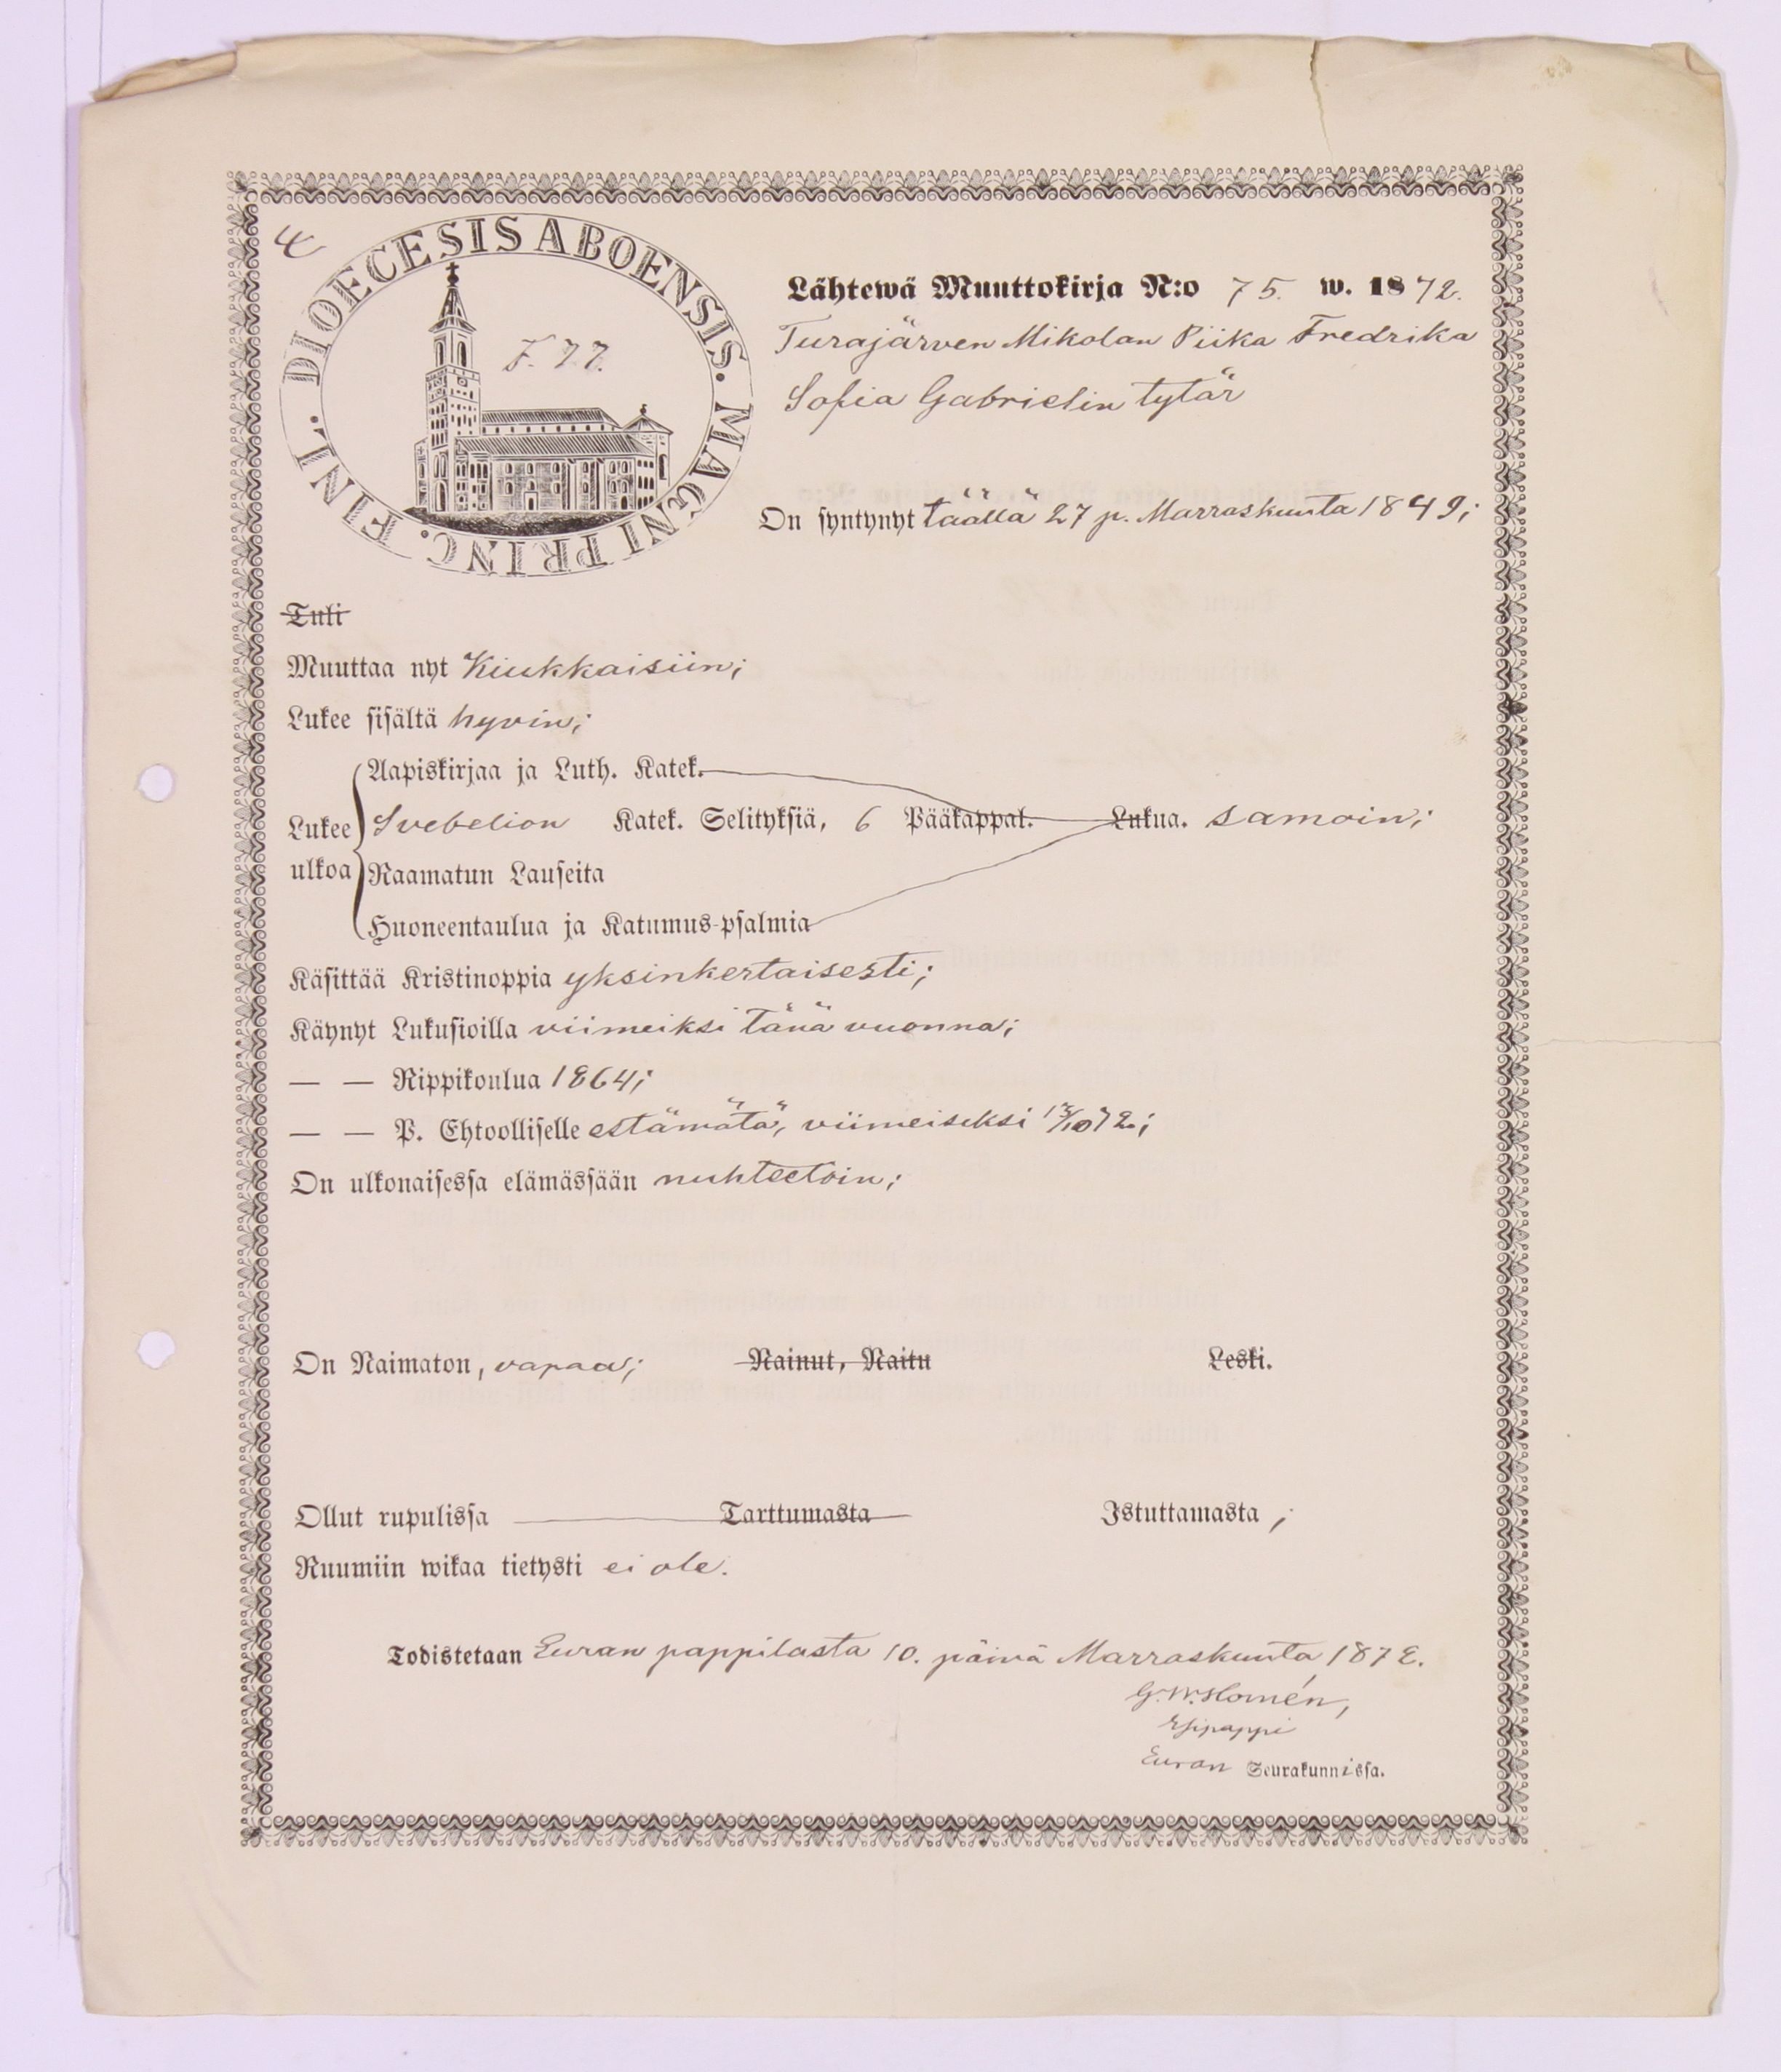 DIOECESIS ABOENSIS. MAGNI PRINC. FINL.
Lähtewä Muuttokirja N:o 75. w. 1872.
Turajärven Mikolan Piika Fredrika
Sofia Gabrielin tytär
On syntynyt täällä 27 p. Marraskuuta 1849;
Tuli
Muuttaa nyt Kiukkaisiin;
Lukee sisältä hyvin;
Aapiskirjaa ja Luth. Katek.
Lukee Svebelion Katek. Selityksiä, 6 Pääkappal. Lukua. samoin;
ulkoa Raamatun Lauseita
Huoneentaulua ja Katumus-psalmia
Käsittää Kristinoppia yksinkertaisesti;
Käynyt Lukusioilla viimeiksi tänä vuonna;
— — Rippikoulua 1864;
— — P. Ehtoolliselle estämätä, viimeiseksi 72;
On ulkonaisessa elämässään nuhteetoin;
On Naimaton, vapaa; Nainut, Naitu Leski.
Ollut rupulissa Tarttumasta Istuttamasta;
Ruumiin wikaa tietysti ei ole.
Todistetaan Euran pappilasta 10. päivä Marraskuuta 1872.
G. W. Homén,
Esipappi
Euran Seurakunnissa.